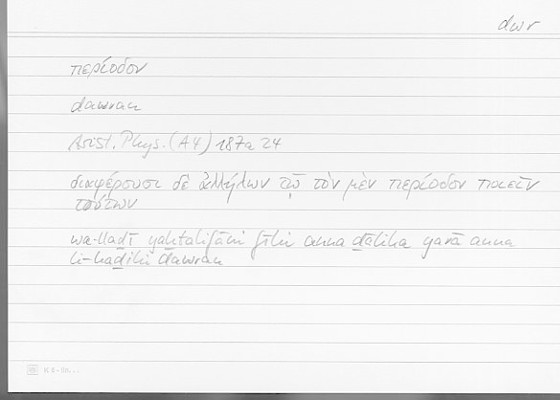 dwr
περίοδον
dawran
Arist. Phys. (A4) 187a 24
διαφέρουσι δὲ ἀλλήλων τῷ τὸν μὲν περίοδον ποιεῖν
τούτων
wa-lladī yaḫtalifāni fīhi anna ḏālika yarā anna
li-hāḏihi dawran